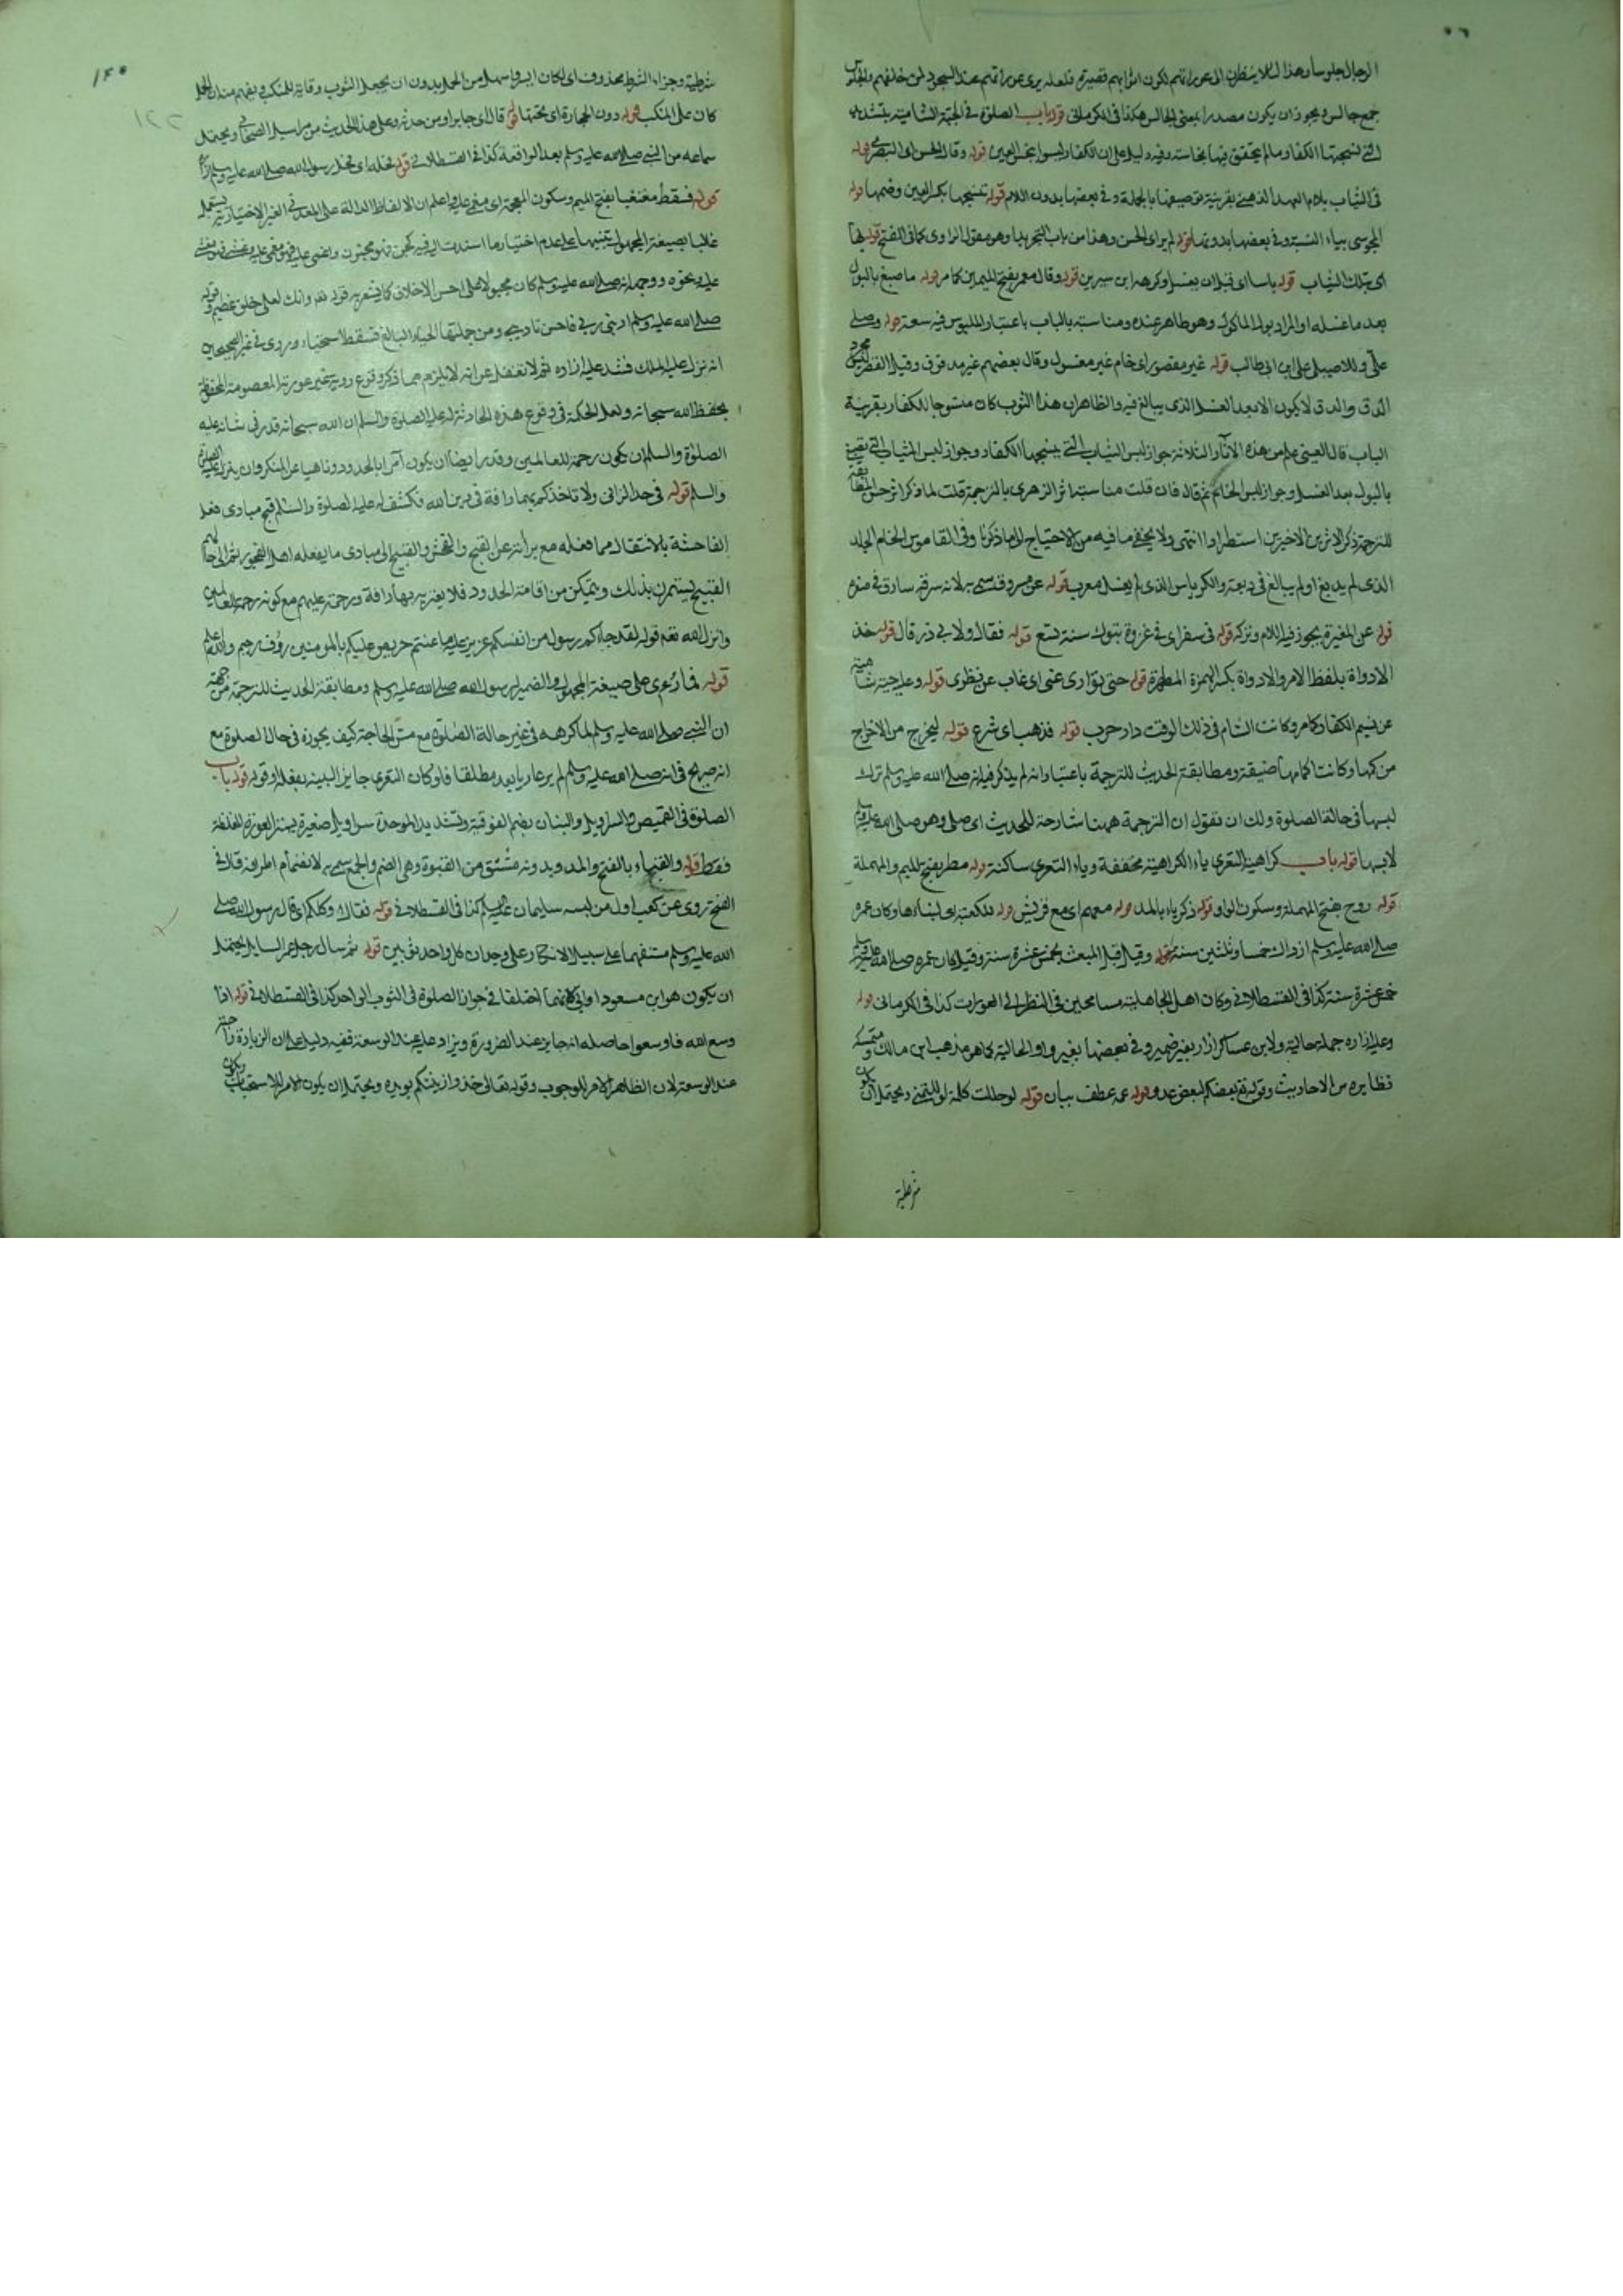 الرجال جلوسا وهذا لئلا ينظرن الى عوراتهم لكون ازرابهم قصيرة فلعله يرى عوراتهم عند السجود لمن خلفهم والجلوس
جمع جالس ويجوز ان يكون مصدرا بمعنى الجالس هكذا فى الكرمانى قوله باب الصلوة فى الجبة الشامية بتشديد
التى ينسجها الكفار ما لم يتحقق فيها نجاسة وفيه دليل على ان الكفار ليسوا بنجس العين قوله وقال الحسن اى البصرى قوله
فى الثياب بلام العهد الذهنى بقرينة توصيفها بالجملة وفى بعضها بدون اللام قوله تنسجها بكسر العين وضمها قوله
المجوسى بياء النسبة وفى بعضها بدونها قوله لم ير اى الحسن وهذا من باب التجريد او هو مقول الراوى كما فى الفتح قوله بها
اى بتلك الثياب قوله باسا اى قبل ان يغسل وكرهه ابن سيرين قوله وقال معمر بفتح الميمين كما مر قوله ما صبغ بالبول
بعد ما غسله او المراد بول الماكول وهو طاهر عنده ومناسبته بالباب باعتبار الملبوس فيه سعة قوله وصلى
على وللاصيلى على ابن ابى طالب قوله غير مقصور اى خام غير مغسول وقال بعضهم غير مدقوق وقيل القصر ليس مجرد
الدق والدق لا يكون الا بعد الغسل الذى يبالغ فيه والظاهر ان هذا الثوب كان منسوجا للكفار بقرينة
الباب قال العينى علم من هذه الآثار الثلاثة جواز لبس الثياب التى ينسجها الكفار وجواز لبس الثياب التى تصبغ
بالبول بعد الغسل وجواز لبس الخام ثم قال فان قلت مناسبة اثر الزهرى بالترجمة قلت لما ذكر اثر حسن المطابقة
للترجمة ذكر الاثرين الاخيرين استطرادا انتهى ولا يخفى ما فيه من الاحتياج الى ما ذكرنا وفى القاموس الخام الجلد
الذى لم يدبغ او لم يبالغ فى دبغه والكرباس الذى لم يغسل معرب قوله عن مسروق سمى به لانه سرقه سارق فى صغره
قوله عن المغيرة يجوز فيه اللام وتركه قوله فى سفر اى فى غزوة تبوك سنة تسع قوله فقال ولابى ذر قال قوله خذ
الاداوة بلفظ الامر والاداوة بكسر الهمزة المطهرة قوله حتى توارى عنى اى غاب عن نظرى قوله وعليه جبة شامية
عن نسج الكفار كما مر وكانت الشام فى ذلك الوقت دار حرب قوله فذهب اى شرع قوله ليخرج من الاخراج
من كمها وكانت اكمامها ضيقة ومطابقة الحديث للترجمة باعتبار انه لم يذكر فيه انه صلى الله عليه وسلم ترك
لبسها فى حالة الصلوة ولك ان تقول ان الترجمة ههنا شارحة للحديث اى صلى وهو صلى الله عليه وسلم
لابسها قوله باب كراهية التعرى ياء الكراهية مخففة وياء التعرى ساكنة قوله مطر بفتح الميم والمهملة
قوله روح بفتح المهملة وسكون الواو قوله زكرياء بالمد قوله معهم اى مع قريش قوله للكعبة اى لبنائها وكان عمره
صلى الله عليه وسلم اذ ذاك خمسا وثلثين سنة قوله وقيل قبل المبعث بخمس عشرة سنة وقيل كان عمره صلى الله عليه وسلم
خمس عشرة سنة كذا فى القسطلانى وكان اهل الجاهلية مسامحين فى النظر الى العورات كذا فى الكرمانى قوله
وعليه ازاره جملة حالية ولابن عساكر ازار بغير ضمير وفى بعضها بغير واو الحالية كما هو مذهب ابن مالك ومتمسكه
نظايره من الاحاديث وقوله تع بعضكم لبعض عدو قوله عمه عطف بيان قوله لو حللت كلمة لو للتمنى ويحتمل ان يكون
شرطية
١٤٠
شرطية وجزاء الشرط محذوف اى لكان ايسر واسهل من الحمل بدون ان يجعل الثوب وقاية للمنكب يفهم منه ان الحمل
كان على المنكب قوله دون الحجارة اى تحتها قوله قال اى جابر او من حدثه وعلى هذا الحديث من مراسيل الصحابى ويحتمل
سماعه من النبى صلى الله عليه وسلم بعد الواقعة كذا فى القسطلانى قوله فحله اى فحل رسول الله صلى الله عليه وسلم
قوله فسقط مغشيا بفتح الميم وسكون المعجمة اى مغمى عليه واعلم ان الالفاظ الدالة على المعنى الغير الاختيارية يستعمل
غالبا بصيغة المجهول تنبيها على عدم اختيار ما اسندت اليه فيه كجن فهو مجنون واغمى عليه فهو مغمى عليه وغشى
عليه ونحوه ووجهه انه صلى الله عليه وسلم كان مجبولا على احسن الاخلاق كما يشعر به قوله تع وانك لعلى خلق عظيم وقوله
صلى الله عليه وسلم ادبنى ربى فاحسن تاديبى ومن جملتها الحياء البالغ فسقط لاستحياء وروى فى غير الصحيحين
انه نزل عليه الملك فشد عليه ازاره ثم لا تغفل عن انه لا يلزم مما ذكر وقوع روية غير عورته المعصومة المحفوظة
بحفظ الله سبحانه ولعل الحكمة فى وقوع هذه الحادثة له عليه الصلوة والسلم ان الله سبحانه قدر فى شانه عليه
الصلوة والسلم ان يكون رحمة للعالمين وقدر ايضا ان يكون آمرا بالحدود وناهيا عن المنكر وان ينزل عليه الصلوة
والسلم قوله فى حد الزانى ولا تاخذكم بهما رافة فى دين الله فكشف له عليه الصلوة والسلم قبح مبادى فعل
الفاحشة بالانتقال مما فعله مع براءته عن القبح والفحش والقبيح الى مبادى ما يفعله اهل الفجور ثم الى حالهم
القبيح ليستمرن بذلك ويتمكن من اقامة الحدود فلا يعتريه بها رافة ورحمة عليهم مع كونه رحمة للعالمين
وانزل الله تعم قوله لقد جاءكم رسول من انفسكم عزيز عليه ما عنتم حريص عليكم بالمومنين روف رحيم والله اعلم
قوله فما رئى على صيغة المجهول والضمير لرسول الله صلى الله عليه وسلم ومطابقة الحديث للترجمة من جهة
ان النبى صلى الله عليه وسلم لما كرهه فى غير حالة الصلوة مع مس الحاجة كيف يجوزه فى حال الصلوة مع
انه صريح فى انه صلى الله عليه وسلم لم ير عاريا بعد مطلقا فلو كان التعرى جايز البينه بفعله او قوله قوله باب
الصلوة فى القميص والسراويل والتبان بضم الفوقية وتشديد الموحدة سراويل صغيرة يستر العورة المغلظة
فقط قوله والقباء بالفتح والمد وبدونه مشتق من القبوة وهى الضم والجمع سمى به لانضمام اطرافه قال فى
الفتح روى عن كعب اول من لبسه سليمان عليه السلم كذا فى القسطلانى قوله فقال او كلكم اى قال رسول الله صلى
الله عليه وسلم مستفهما على سبيل الانكار وعلى وجدان كل واحد ثوبين قوله ثم سال رجل عمر السايل يحتمل
ان يكون هو ابن مسعود او ابى لانهما اختلفا فى جواز الصلوة فى الثوب الواحد كذا فى القسطلانى قوله اذا
وسع الله فاوسعوا حاصله انه جايز عند الضرورة ويزاد عليه عند الوسعة ففيه دليل على ان الزيادة
عند الوسعة لان الظاهر الامر للوجوب وقوله تعالى خذوا زينتكم يويده ويحتمل ان يكون الامر للاستحباب